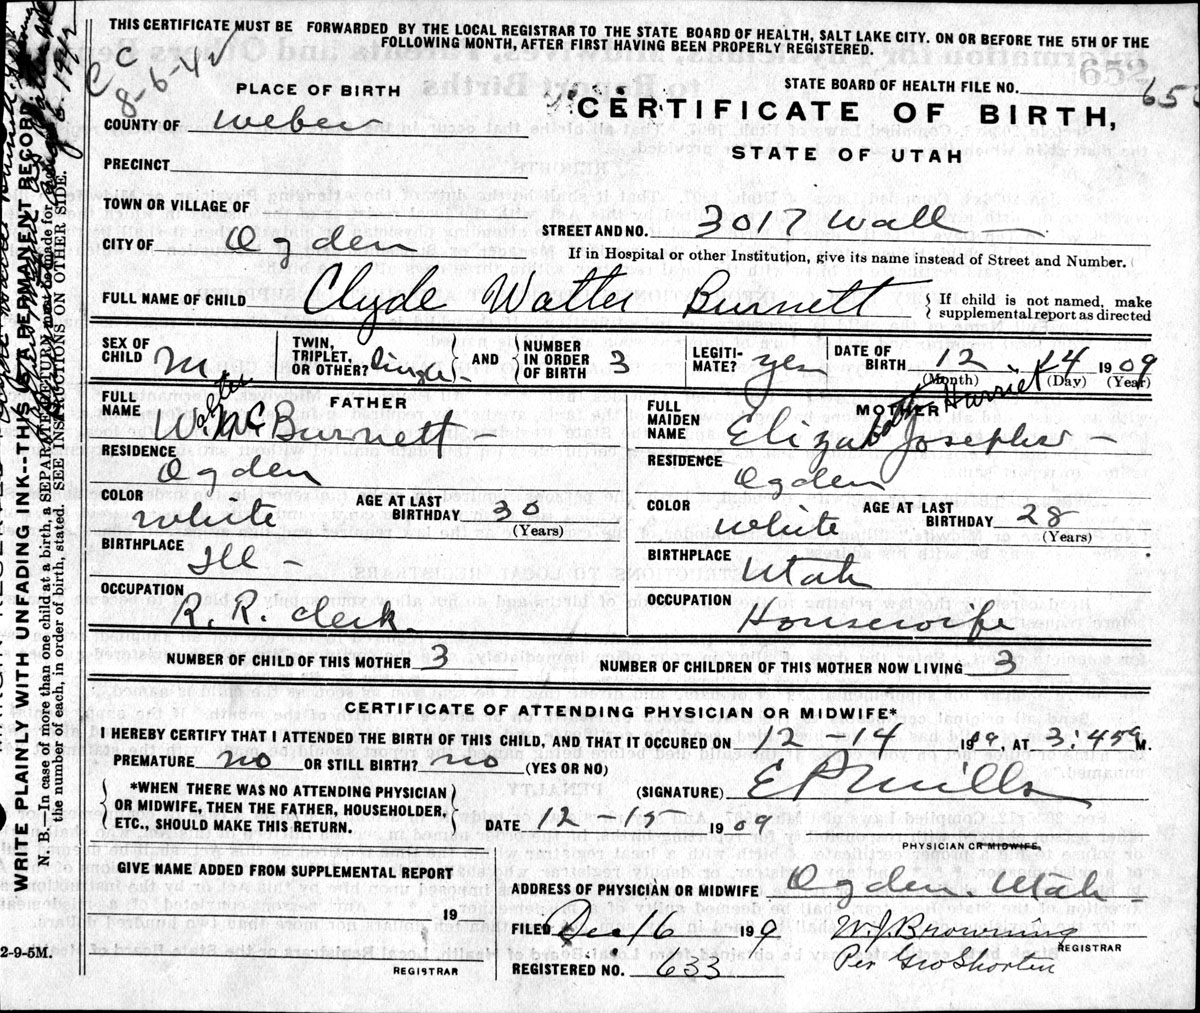 THIS CERTIFICATE MUST BE FORWARDED BY THE LOCAL REGISTRAR TO THE STATE BOARD OF HEALTH, SALT LAKE CITY. ON OR BEFORE THE 5TH OF THE
FOLLOWING MONTH, AFTER FIRST HAVING BEEN PROPERLY REGISTERED.
CC
8-6-42
STATE BOARD OF HEALTH FILE NO. 658
PLACE OF BIRTH
CERTIFICATE OF BIRTH,
COUNTY OF Weber
STATE OF UTAH
PRECINCT
TOWN OR VILLAGE OF
STREET AND NO. 3017 Wall
CITY OF Ogden
If in Hospital or other Institution, give its name instead of Street and Number.
FULL NAME OF CHILD Clyde Walter Burnett { If child is not named, make
supplemental report as directed
SEX OF CHILD M TWIN, TRIPLET, OR OTHER? Single AND NUMBER IN ORDER OF BIRTH 3 LEGITIMATE? yes DATE OF BIRTH 12 14 1909
(Month) (Day) (Year)
FATHER
FULL NAME Walter
W. Mc Burnett
RESIDENCE
Ogden
COLOR White AGE AT LAST BIRTHDAY 30
(Years)
BIRTHPLACE
Ill
OCCUPATION
R. R. Clerk.
MOTHER
FULL MAIDEN NAME Harriet
Elizabeth Josephs
RESIDENCE
Ogden
COLOR White AGE AT LAST BIRTHDAY 28
(Years)
BIRTHPLACE
Utah
OCCUPATION
Housewife
NUMBER OF CHILD OF THIS MOTHER 3 NUMBER OF CHILDREN OF THIS MOTHER NOW LIVING 3
CERTIFICATE OF ATTENDING PHYSICIAN OR MIDWIFE*
I HEREBY CERTIFY THAT I ATTENDED THE BIRTH OF THIS CHILD, AND THAT IT OCCURED ON 12 14 1909, AT 3.45 P. M.
PREMATURE no OR STILL BIRTH? no (YES OR NO)
(SIGNATURE) E P Mills
PHYSICIAN OR MIDWIFE.
*WHEN THERE WAS NO ATTENDING PHYSICIAN
OR MIDWIFE, THEN THE FATHER, HOUSEHOLDER,
ETC., SHOULD MAKE THIS RETURN.
DATE 12 15 1909
GIVE NAME ADDED FROM SUPPLEMENTAL REPORT
19
REGISTRAR
ADDRESS OF PHYSICIAN OR MIDWIFE Ogden Utah
FILED Dec 16 1909 W. J. Browning
REGISTRAR
REGISTERED NO. 633 Per Geo Shorten
2-9-5M.
WRITE PLAINLY WITH UNFADING INK--THIS IS A PERMANENT RECORD
N. B.—In case of more than one child at a birth, a SEPARATE RETURN must be made for
the number of each, in order of birth, stated. SEE INSTRUCTIONS ON OTHER SIDE.